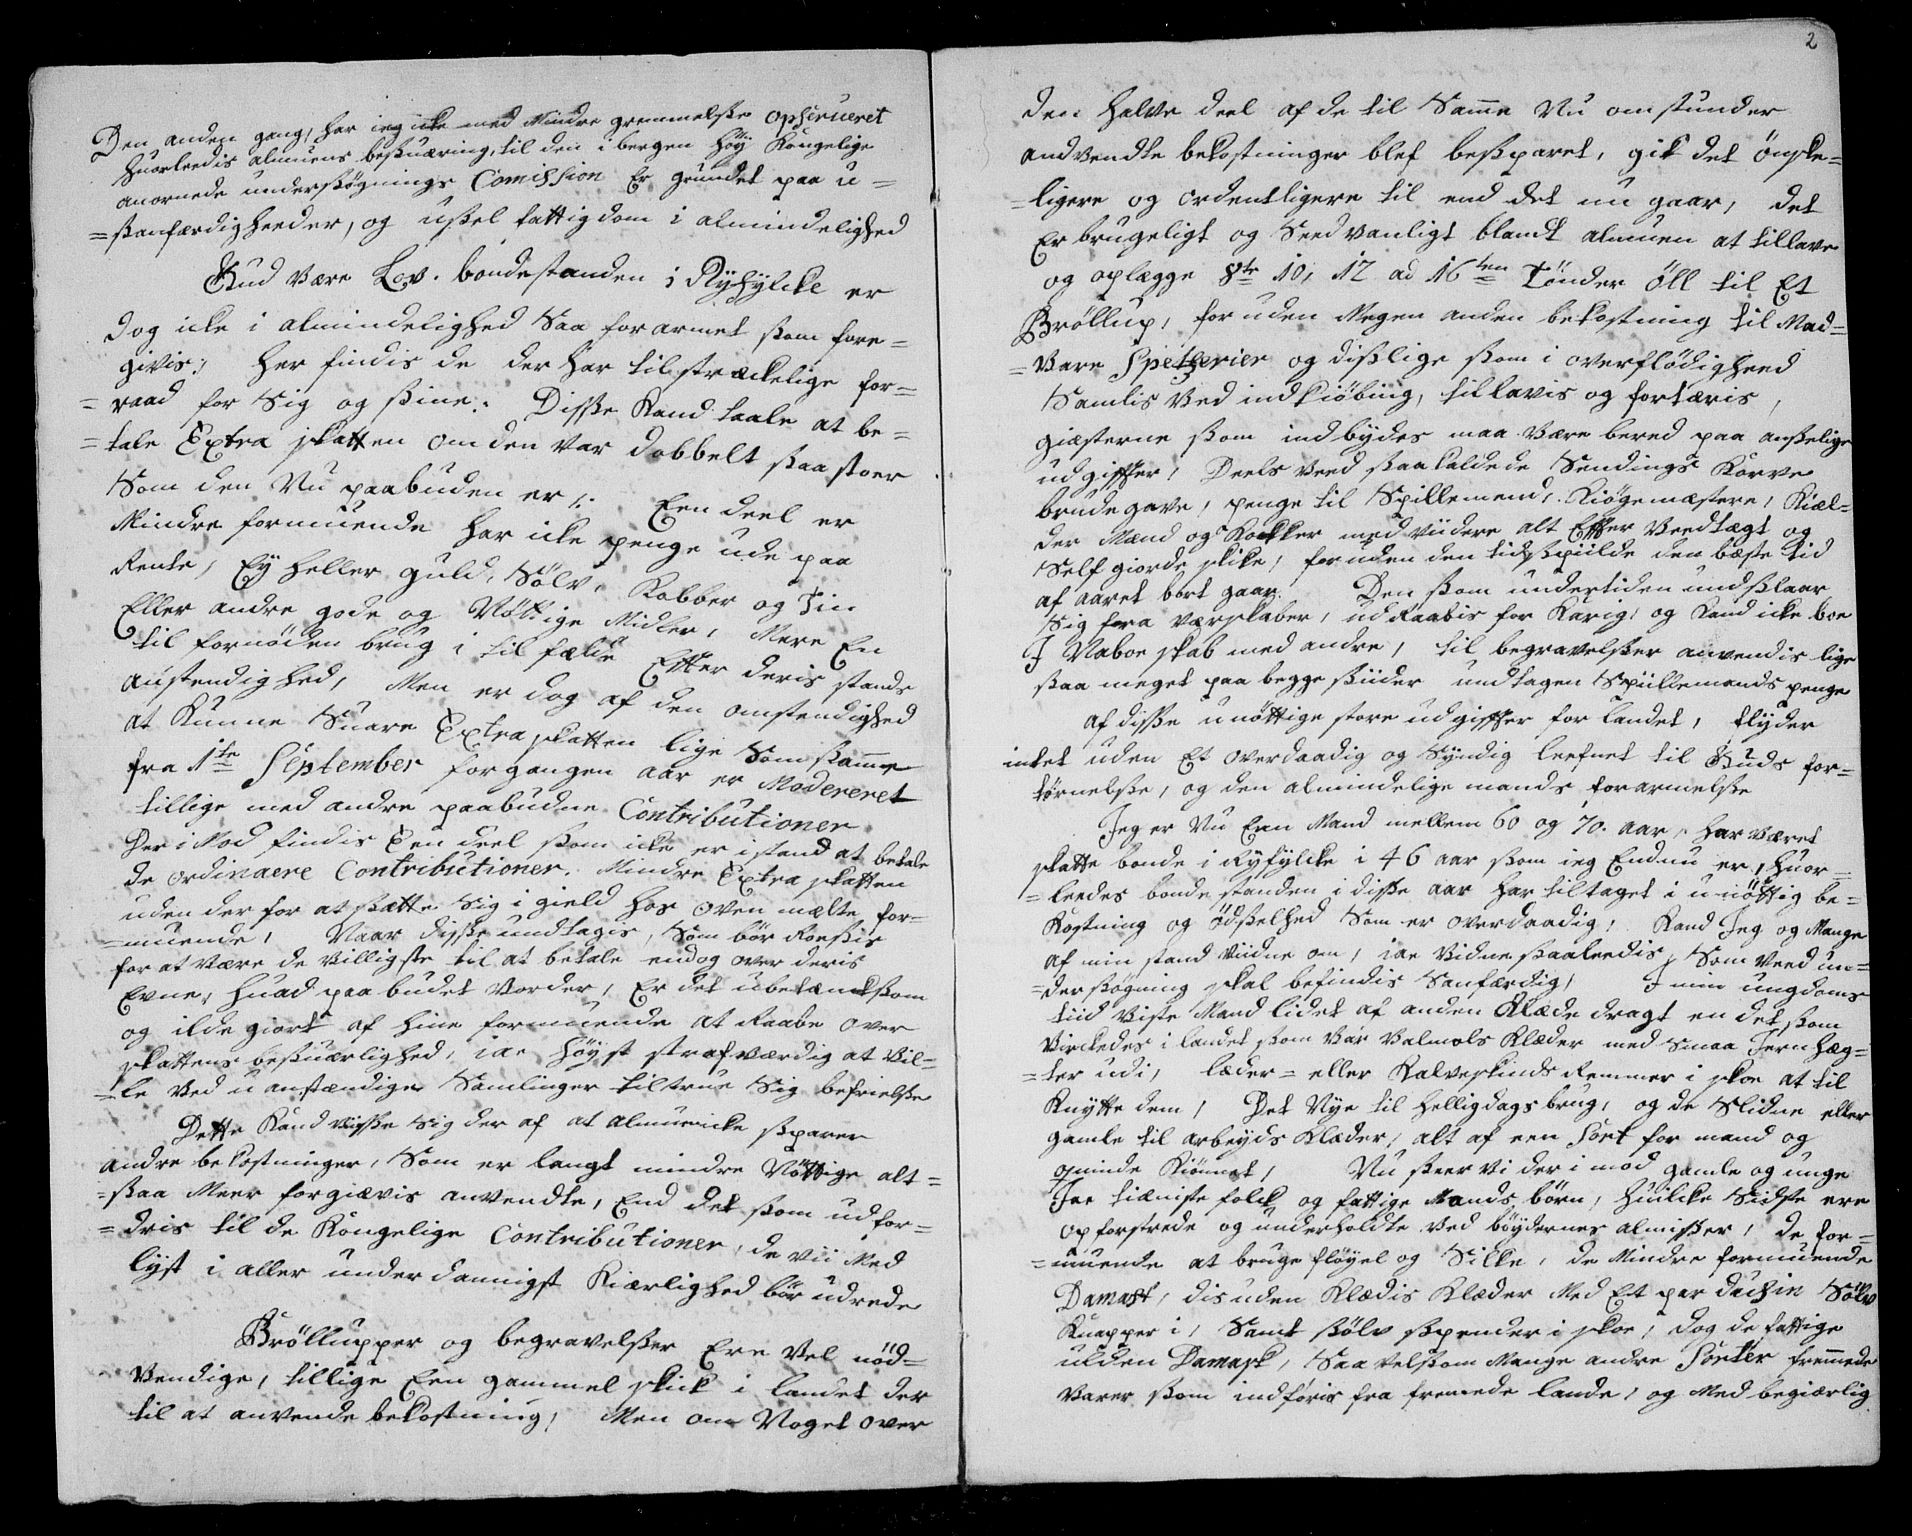 Den anden gang, har ieg icke med Mindre gremmelsse opserveret
huorleedis almuens besuæring, til den i bergen høy Kongelige
anornede undersøgnings Comission Er grundet paa u=
=sanfærdigheeder, og ussel fattigdom i almindelighed
Gud være Lov. bondestanden i Ryfylcke er
dog icke i almindelighed Saa forarmet som fore=
givis; her findis de der har tilstræckelige for=
=raad for Sig og sine. Disse Kand taale at be=
=tale Extra skatten om den var dobbelt saa stoer
Som den Nu paabuden er; Een deel er
Mindre formuende har icke penge ude paa
Rente, Ey heller guld, Sølv, Kobber og Tin
Eller andre gode og Nøttige Midler, Mere En
til fornøden brug i tilfælde Efter deris stands
anstendighed, Men er dog af den omstendighed
at Kunne Suare Extra skatten lige Som samme
fra 1te September forgangen aar er Modereret
tillige med andre paabudne Contributioner
Der i Mod findis Een deel som icke er i stand at betale
de ordinaere Contributioner. Mindre Extra skatten
uden der for at sætte Sig i gield hos oven mælte for=
=muende, Naar disse undtages, Som bør Roessis
for at være de Villigste til at betale endog over deris
Evne, huad paa budet Vorder, Er det ubetæncksom
og ilde giort af hine formuende at Raabe over
skattens besuærlighed, iae høyst strafværdig at Vil=
=le Ved u anstændige Samlinger tiltrue Sig befrielsse
Dette Kand Visse Sig der af at Almuen icke sparer
andre bekostninger, Som er langt mindre Nøttige alt=
=saa Meer forgiævis anvendte, End det som udfor=
=dris til de Kongelige Contributioner, de vii Med
lyst i aller underdannigst Kiærlighed bør udrede
Brøllupper og begravelsser Ere Vel nød=
Vendige, tillige Een gammel skick i landet der
til at anvende bekostning, Men om Noget over
2
den halve deel af de til Samme Nu omstunder
andvendte bekostninger blef besparet, gik det ønske=
=ligere og ordentligere til end det nu gaar, det
Er brugeligt og Seedvanligt blandt almuen at tillave
og oplægge 8te 10, 12 ad 16ten Tønder Øll til Et
Brøllup, foruden Megen anden bekostning til Mad=
=Vare Spetzerier og disslige som i overflødigheed
Samlis Ved indkiøbing, tillavis og fortæris,
giæsterne som indbydes maa være bered paa anselige
udgiffter, Deels Veed saakaldede Sendings Korve
brudegave, penge til Spillemend, Kiøgemæstere, Kiæl=
der Mænd og Kokker med viidere alt Effter Veedtægt og
Self giorde skike, foruden den tidsspiilde den bæste tid
af aaret bort gaar. Den som undertiden undslaar
Sig fra værskaber, udRaabis for Karig, og Kand icke boe
I Naboeskab med andre, til begravelsser anvendis lige
saa meget paa begge siider undtagen Spiillemands penge
af disse unøttige store udgiffter for landet, flyder
intet uden Et overdaadig og Syndig leefnet til Guds for=
tørnelsse, og den almindelige mands forarmelsse
Jeg er Nu Een Mand mellem 60 og 70. aar, har været
skatte bonde i Ryfylcke i 46 aar som ieg Endnu er, Huor=
=leedes bondestanden i disse aar har tiltaget i unøttig be=
Kostning og ødselhed Som er overdaadig, Kand Jeg og Mange
af min stand viidne om, iae Vidne saaleedis, Som Veed un=
=dersøgning skal befindis Sanfærdig, I min ungdoms
tiid viste Mand lidet af anden Klæde dragt en det som
Virckedes i landet som var Valmols Klæder med Smaa Jern hæg=
=ter udi, læder= eller Kalveskinds Remmer i skoe at til
Knytte dem, Det Nye til helligdags brug, og de Slidne eller
gamle til arbeyds Klæder, alt af een Sort for mand og
qvinde Kiønnet, Nu seer vi der i mod gamle og unge
Jae tiæniste folck og fattige Mands børn, huilcke Sidste ere
opforstrede og underholdte Ved bøydernes almisser, de for=
=muende at bruge fløyel og Silke, de Mindre formuende
Damast, dis uden Klædis Klæder Med Et par dusin Sølv
Knapper i, Samt sølv spender i skoe, dog de fattige
ulden Damask, Saavelsom Mange andre Sorter fremmede
Varer som indføris fra fremede lande, og Med begiærlig